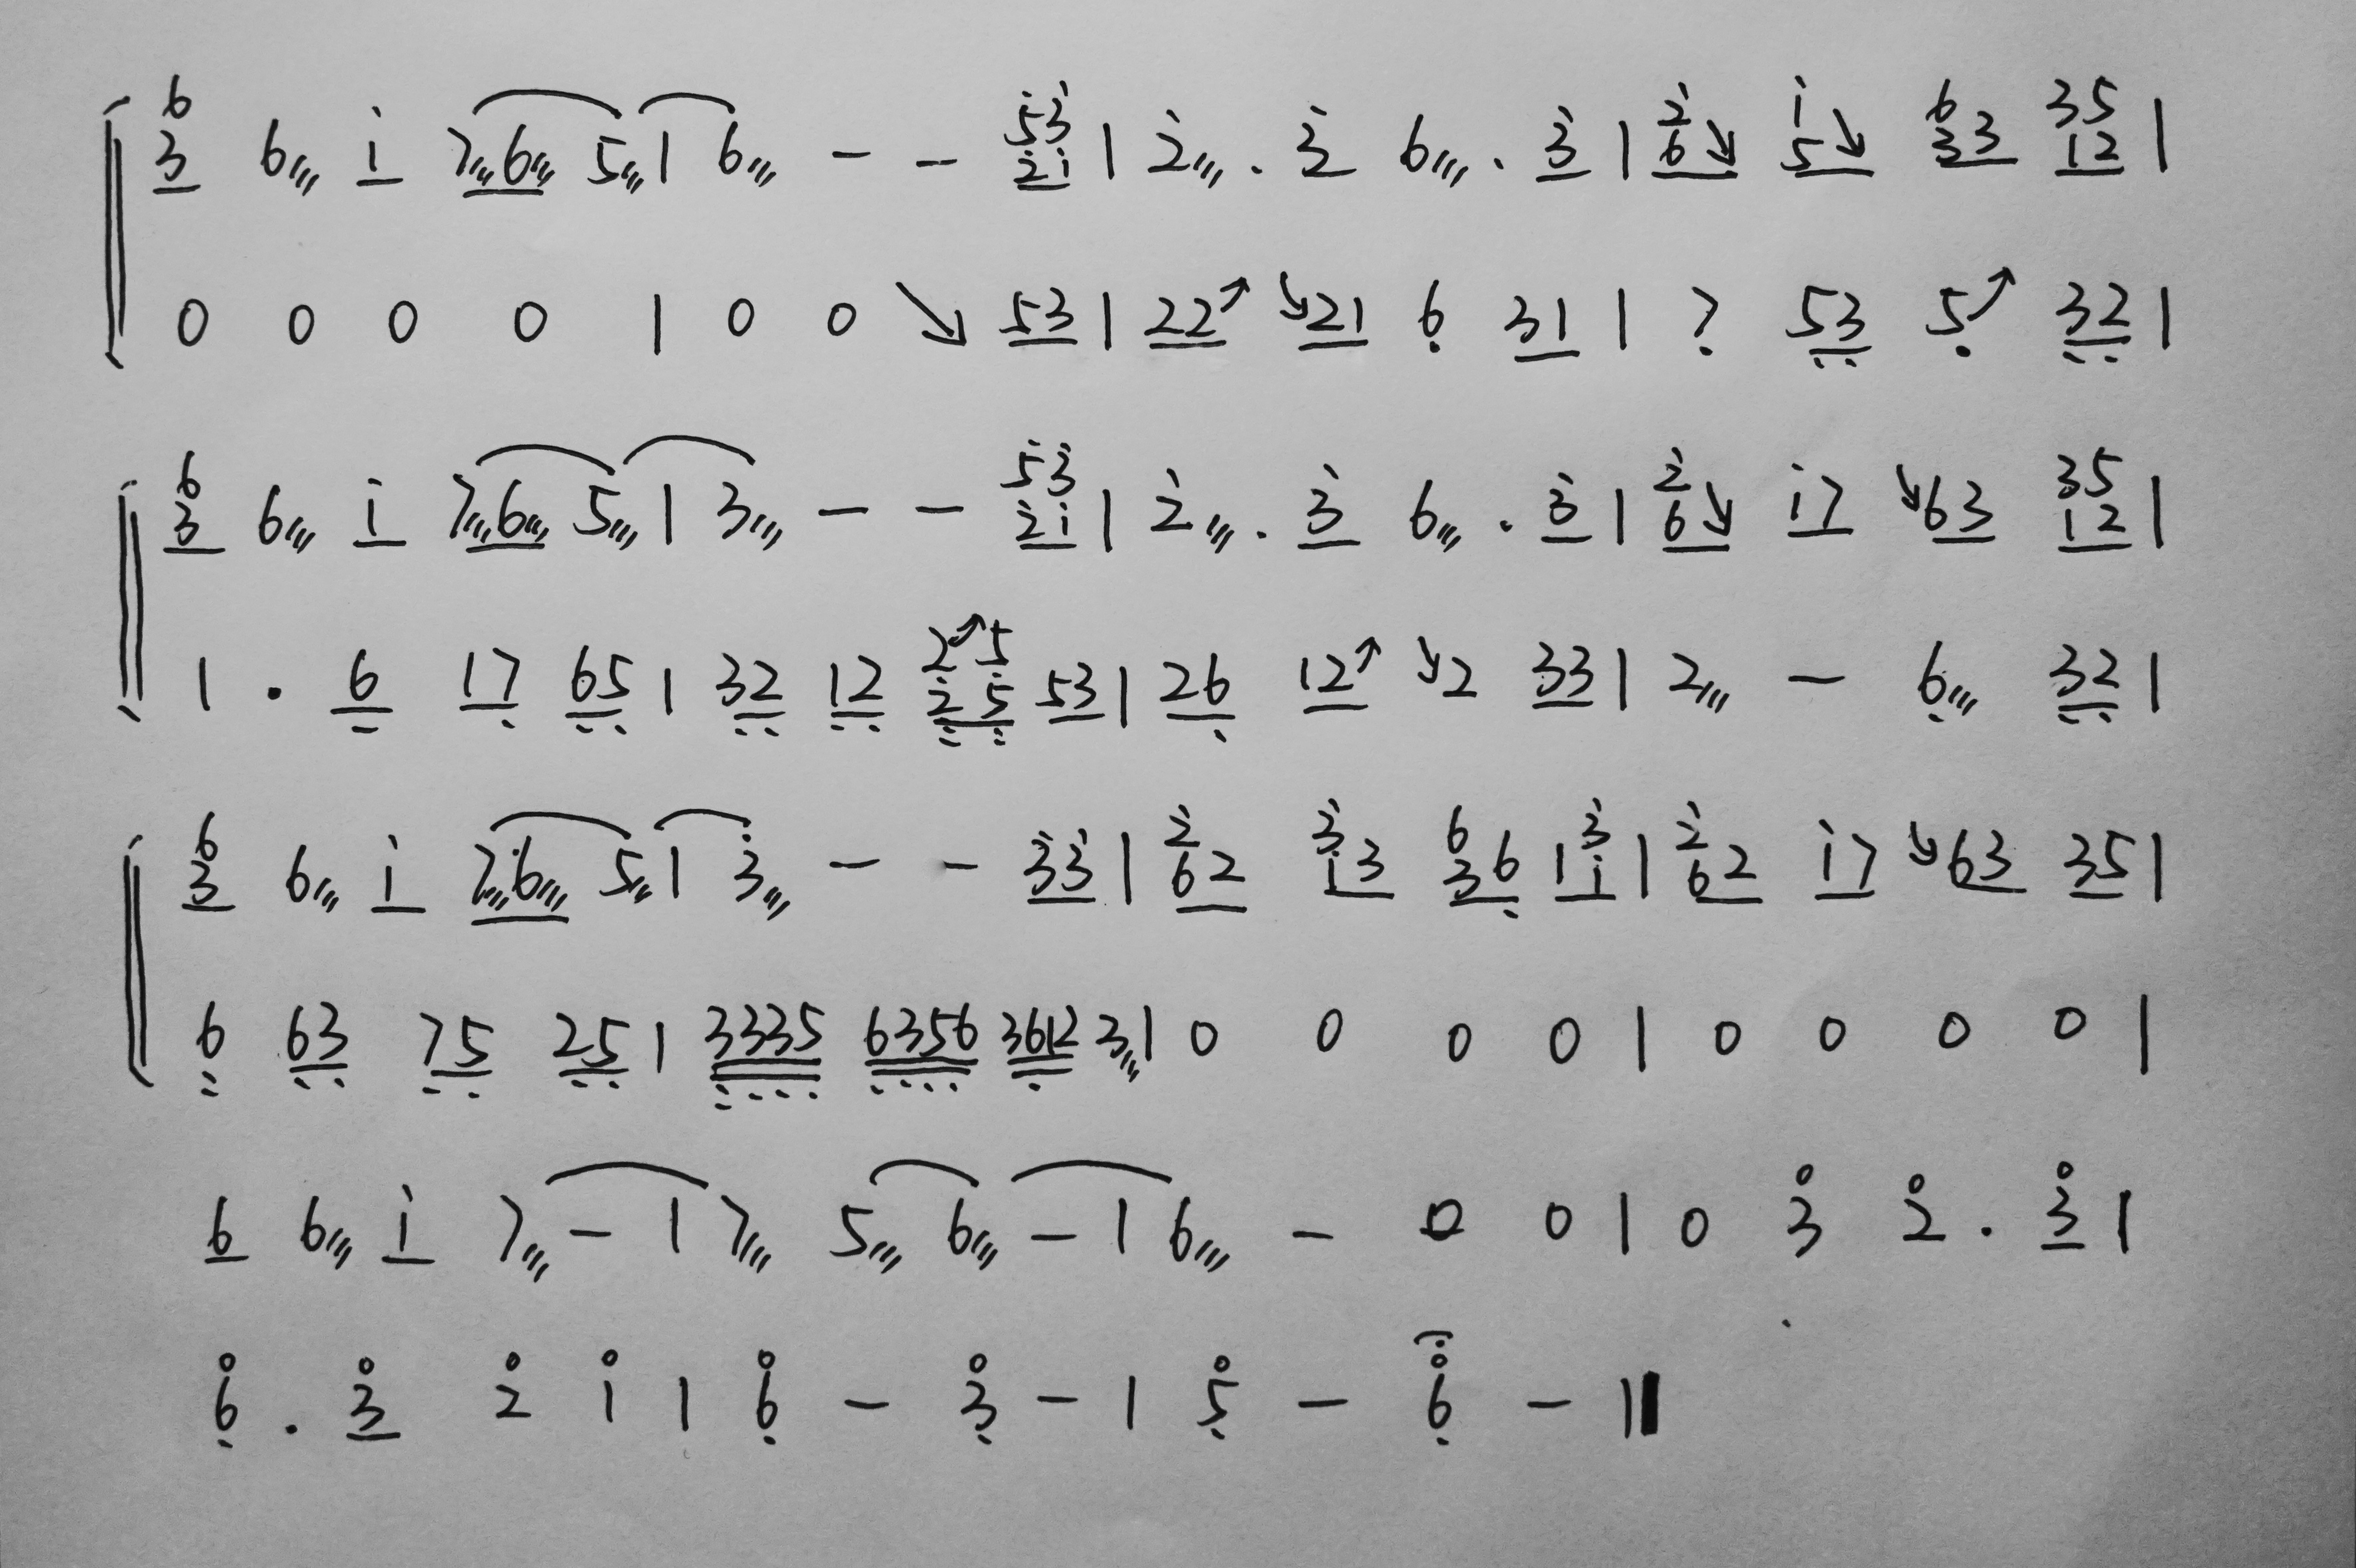 6/3 6/// i 7///6/// 5/// | 6/// - - 53/2i | 2///. 3 6///. 3 | 2/6↘ i/5↘ 6/33 35/12 |
0 0 0 0 | 0 0 ↘ 53 | 22↗ ↘21 6 31 | 7 53 5↗ 32 |
6/3 6/// i 7///6/// 5/// | 3/// - - 53/2i | 2///. 3 6///. 3 | 2/6↘ i7 ↘63 35/12 |
1. 6 17 65 | 32 12 2↗5/25 53 | 26 12↗ ↘2 33 | 2/// - 6/// 32 |
6/3 6/// i 7///6/// 5/// | 3/// - - 33 | 2/62 3/13 6/36 13/i | 2/62 i7 ↘63 35 |
6 63 75 25 | 3335 6356 3612 3/// | 0 0 0 0 | 0 0 0 0 |
6 6/// i 7/// - | 7/// 5/// 6/// - | 6/// - 0 0 | 0 3 2. 3 |
6. 3 2 1 | 6 - 3 - | 5 - 6 - ||